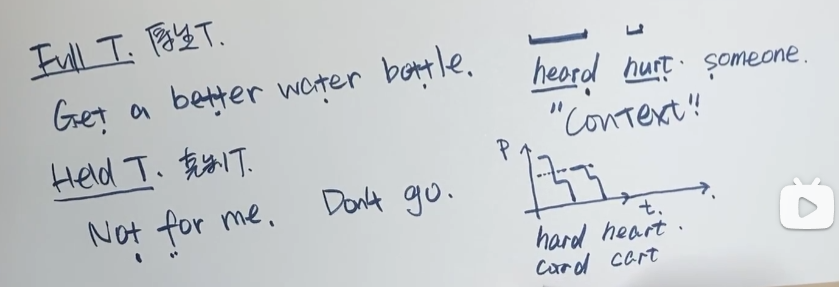 Full T. 原生T.
Get a better water bottle.
Held T. 克制T.
Not for me. Don't go.
heard hurt. someone.
"Context"!
P
t.
hard heart.
card cart